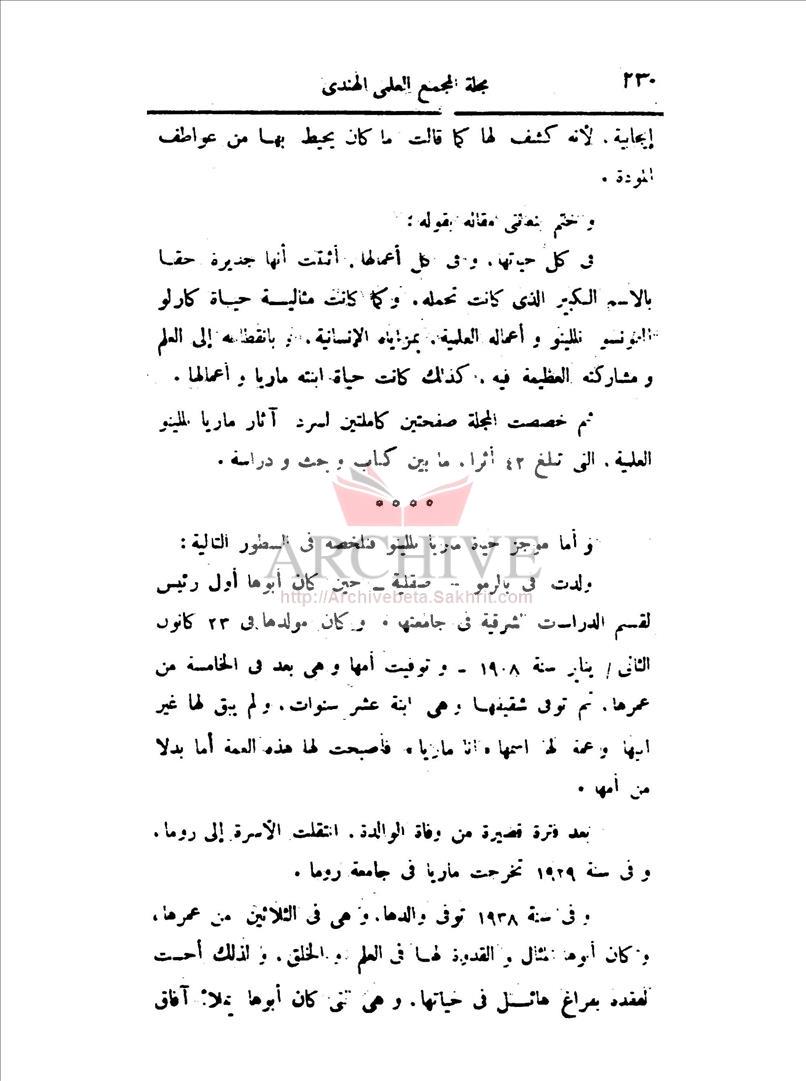 ٢٣٠
مجلة المجمع العلمى الهندى
إيجابية. لأنه كشف لها كما قالت ما كان يحيط بها من عواطف
المودة .
و ختم مقاله بقوله :
فى كل حياتها، و فى كل أعمالها. أثبتت أنها جديرة حقا
بالاسم الكبير الذى كانت تحمله. وكما كانت مثالية حياة كارلو
الفونسو نللينو و أعماله العلمية. بمزاياه الإنسانية. و بانقطاعه إلى العلم
و مشاركته العظيمة فيه . كذلك كانت حياة ابنته ماريا و أعمالها .
ثم خصصت المجلة صفحتين كاملتين لسرد آثار ماريا نللينو
العلمية. التى تبلغ ٤٢ أثرا. ما بين كتاب و بحث و دراسة .
ARCHIVE
http://Archivebeta.Sakhrit.com
و أما موجز حياة ماريا نللينو فنلخصه فى السطور التالية :
ولدت فى بالرمو - صقلية - حين كان أبوها أول رئيس
لقسم الدراسات الشرقية فى جامعتها . و كان مولدها فى ٢٣ كانون
الثانى / يناير سنة ١٩٠٨ - و توفيت أمها و هى بعد فى الخامسة من
عمرها. ثم توفى شقيقها و هى ابنة عشر سنوات. و لم يبق لها غير
ابيها و عمة لها اسمها « انا ماريا » فأصبحت لها هذه العمة أما بدلا
من أمها .
بعد فترة قصيرة من وفاة الوالدة. انتقلت الأسرة إلى روما.
و فى سنة ١٩٢٩ تخرجت ماريا فى جامعة روما .
و فى سنة ١٩٣٨ توفى والدها. و هى فى الثلاثين من عمرها،
و كان أبوها المثال و القدوة لها فى العلم و الخلق. و لذلك أحست
لفقده بفراغ هائل فى حياتها. و هى التى كان أبوها يملأ آفاق